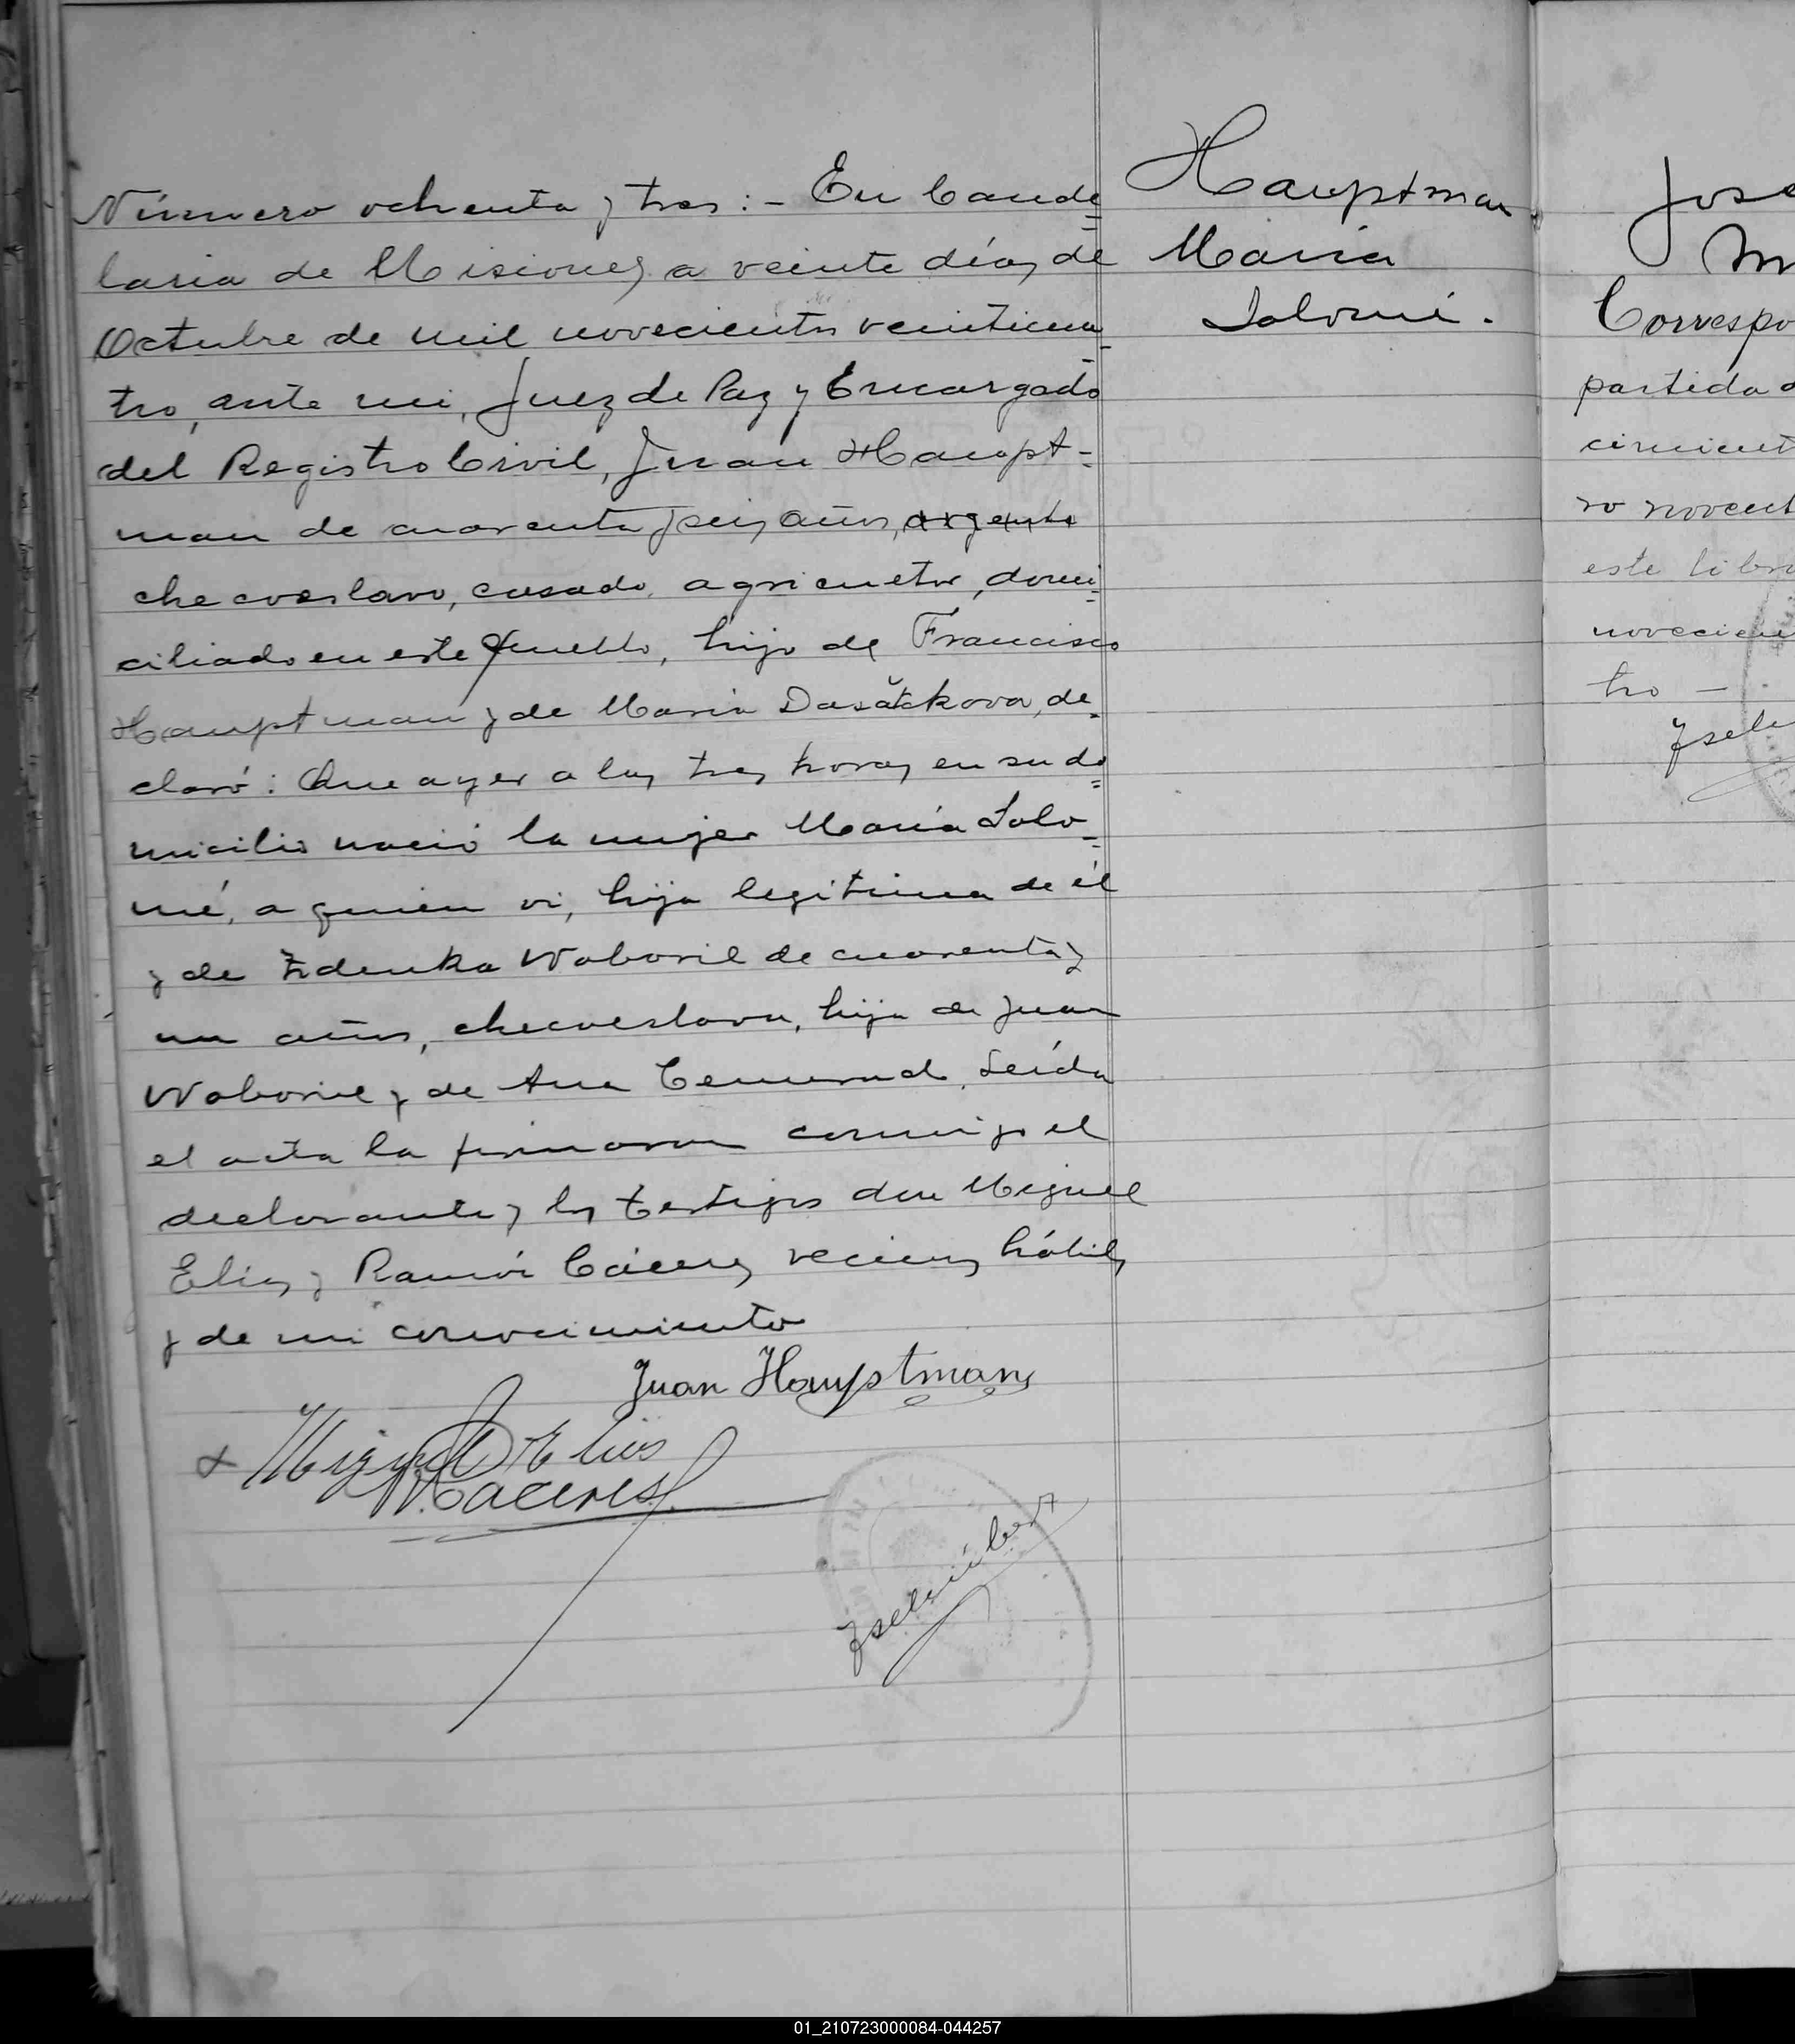 Número ochenta y tres: - En Cande=
laria de Misiones a veinte días de
Octubre de mil novecientos veinticua-
tro, ante mi, Juez de Paz y Encargado
del Registro Civil, Juan Haupt=
man de cuarenta y seis años, argento
checoeslavo, casado, agricultor, domi=
ciliado en este pueblo, hijo de Francisco
Hauptman y de Maria de=
claró: Que ayer a las tres horas en su do=
micilio nació la mujer María Salo=
mé, a quien vi, hija legítima de él
y de Zdenka Woboril de cuarenta y
un años, checoeslava, hija de Juan
Woboril y de Ana Leída
el acta la firmaron conmigo el
declarante y los testigos don Miguel
Elias y Ramón Cáceres vecinos hábiles
y de mi conocimiento
Juan Hauptman
Miguel Elias
R. Caceres
Hauptman
María
Salomé.
José
M
Correspo
partida d
cimient
ro novent
este libro
novecien
tro —